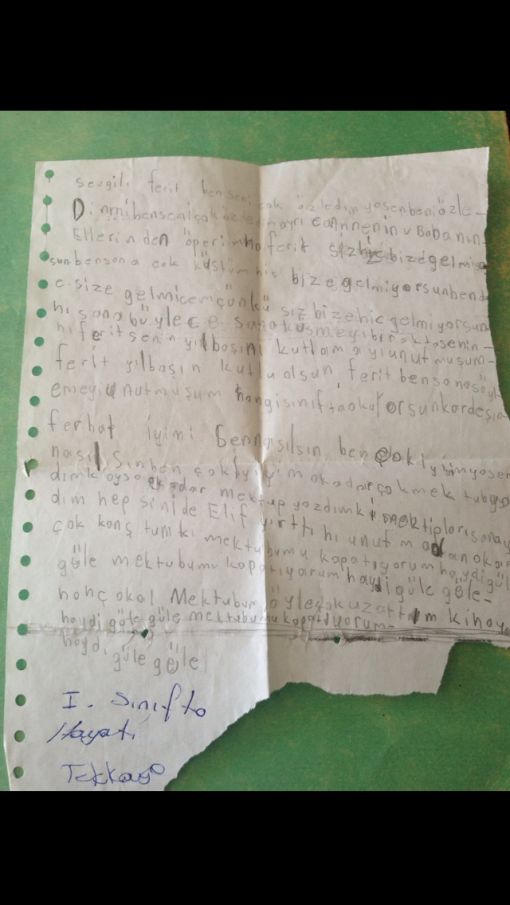 sevgili ferit ben seni çok özledim ya sen beni özle-
Dinmi ben seni çok özledim ayrı ca annenin v Babanın
Ellerinden öperim ha ferit siz hiç bize gelmiyo
sun ben sana çok küstüm hiç bize gelmiyorsun bende
c size gelmicem çünkü siz bize hiç gelmiyorsun
hı sana böylece sana küsmeyi bıraktı senin-
hı ferit senin yılbaşını kutlamayı unutmuşum-
ferit yılbaşın kutlu olsun, ferit ben sana söyl
emeyi unutmuşum hangi sınıfta okuyorsun kardeşin
ferhat iyimi Ben nasılsın ben çok iyiyim ya sen
nasılsın ben çok iyiyim o kadar çok mektub
dımkoysa kadar mektup yazdım ki mektipları sanay
dım hep sini de Elif yırttı hı unutmadan oka
çok konş tumki mektubumu kapatıyorum haydi gül
güle mektubumu kapatıyorum haydi güle güle-
honç okal Mektubum öyle çok uzattım ki hay
haydi güle güle mektubumu kapatıyorum-
haydi güle güle
I. Sınıfta
Hayati
Tekkaya